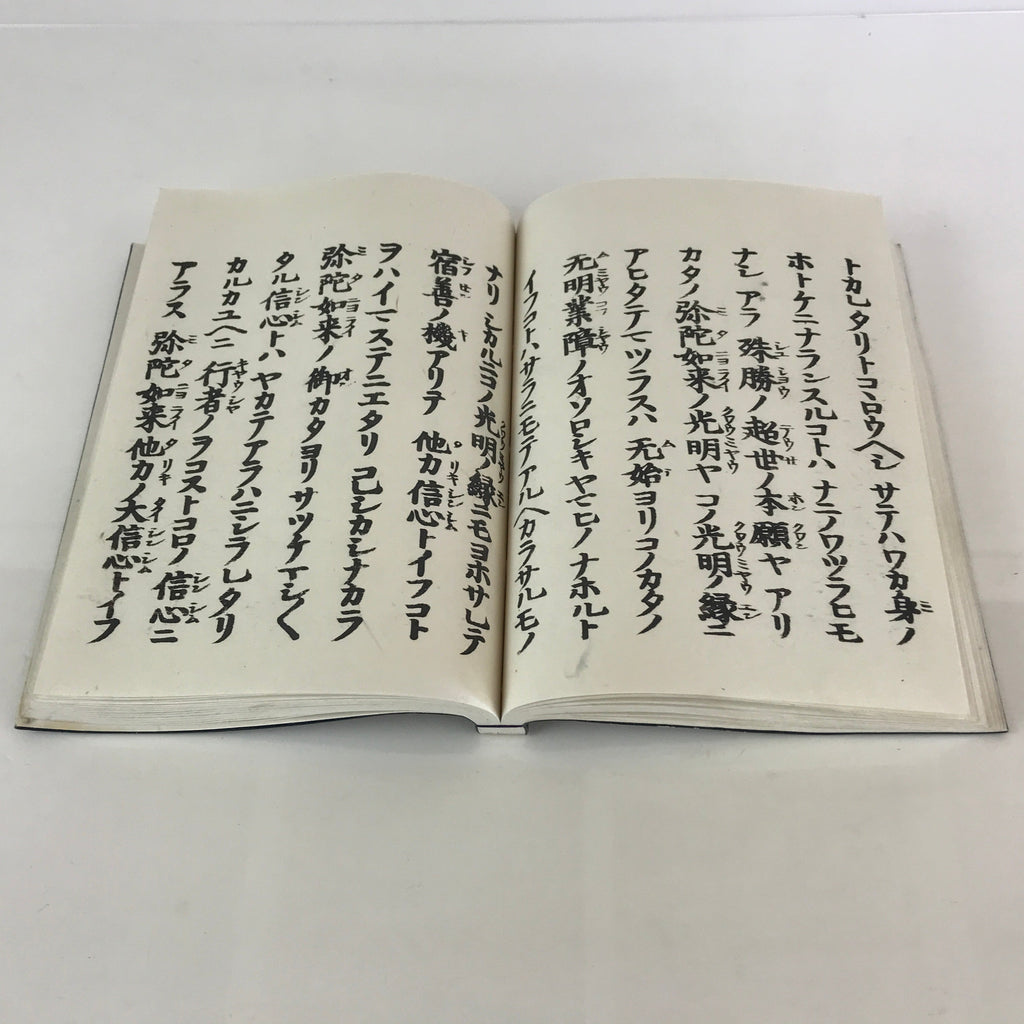 トカレタリトコヽロウヘシ サテハワカ身ノ
ホトケニナランスルコトハ ナニノワツラヒモ
ナシ アラ 殊勝ノ超世ノ本願ヤ アリ
カタノ 弥陀如来ノ光明ヤ コノ光明ノ縁ニ
アヒタテマツラスハ 无始ヨリコノカタノ
无明業障ノオソロシキヤマヒノ ナホルト
イフコトハ サラニモテアルヘカラサルモノ
ナリ シカルニコノ光明ノ縁ニモヨホサレテ
宿善ノ機アリテ 他力信心トイフコト
ヲハ イマステニエタリ 己シカシナカラ
弥陀如来ノ御カタヨリ サツケマシ〱
タル信心トハ ヤカテアラハニシラレタリ
カルカユヘニ 行者ノヲコストコロノ信心ニ
アラス 弥陀如来他力ノ大信心トイフ